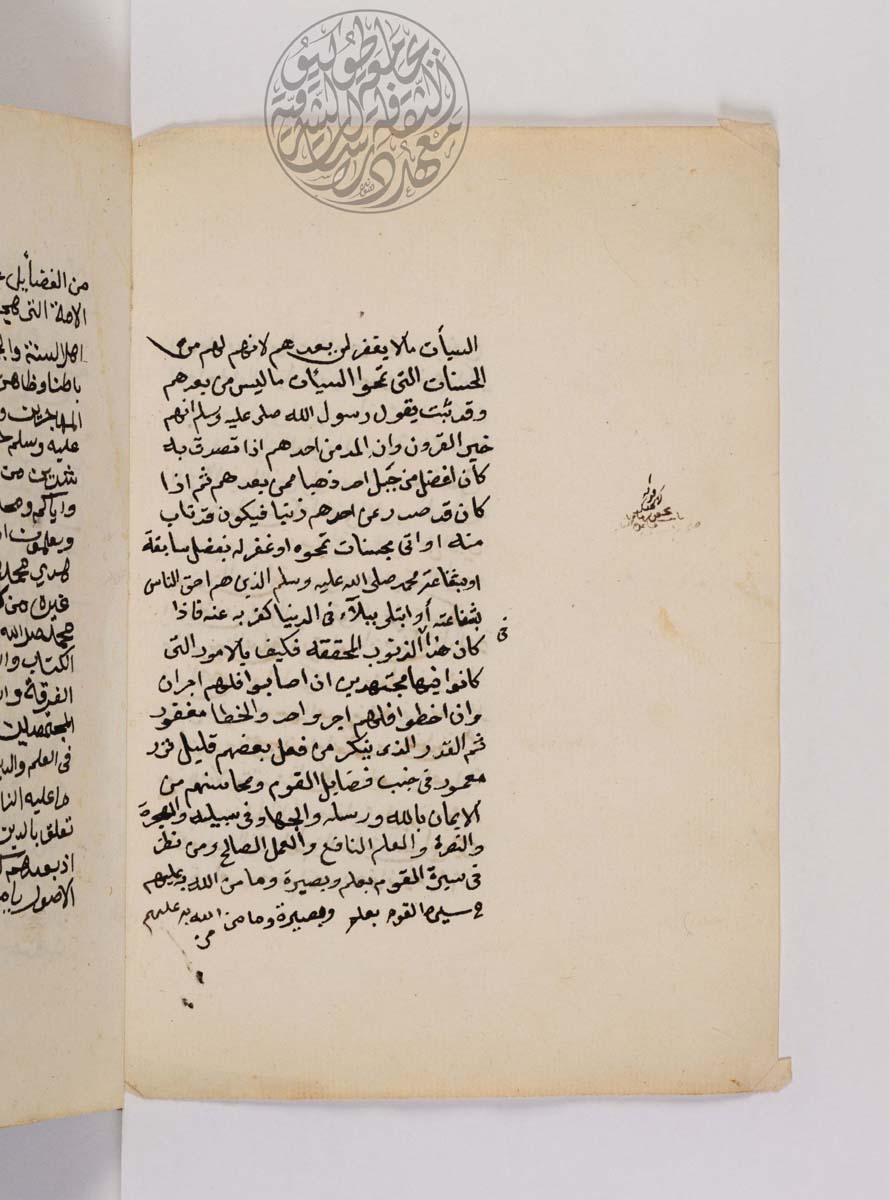 السيأت مالا يغفر لمن بعدهم لانهم لهم من
الحسنات التي تمحوا السيئات ما ليس من بعدهم
وقد ثبت يقول رسول الله صلى عليه وسلم انهم
خير القرون وان المد من احدهم اذا تصدق به
كان افضل من جبل احد ذهبا ممن بعدهم ثم اذا
كان قد صدر عن احدهم ذنبا فيكون قد تاب
منه او اتى بحسنات تمحوه او غفر له بفضل سابقة
او بشفاعة محمد صلى الله عليه وسلم الذي هم احق الناس
بشفاعته أو ابتلى ببلآء في الدنيا كفر به عنه فاذا
في
كان هذا الذنوب المحققه فكيف بالامور التي
كانوا فيها مجتهدين ان اصابوا فلهم اجران
وان اخطوا فلهم اجر واحد والخطا مغفور
ثم القدر الذى ينكر من فعل بعضهم قليل نزر
مغمور في جنب فضايل القوم ومحاسنهم من
الايمان بالله ورسله والجهاد في سبيله والهجرة
والنصرة والعلم النافع والعمل الصالح ومن نظر
في سيرة القوم بعلم وبصيرة وما من الله به عليهم
في سيرة القوم بعلم وبصيرة وما من الله به عليهم
من
من الفضأيل
الامة التي هي
اهل السنة
باطنا وظاهرا
المهاجرين
عليه وسلم
من
واياكم
هدي محمد
غيره من
محمد صلى الله
الكتاب
الفرقة
في العلم والدين
ما عليه
تعلق بالدين
اذ بعدهم
الاصول